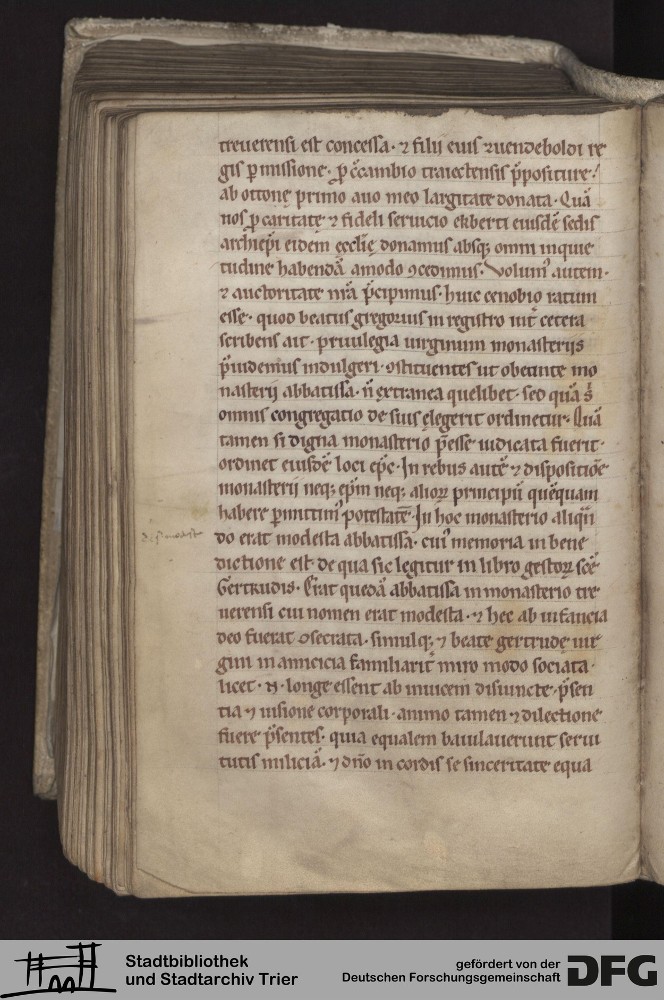 treuerensi est concessa· ⁊ filii eius zuendeboldi re
gis p̱missione· ꝓ c̄cambio traiectensis p̄positure·
ab ottone primo auo meo largitate donata· Quā
nos ꝓ caritate ⁊ fideli seruicio ekberti eiusdē sedis
archiep̄i eidem ęcclię donamus absq; omni inquie
tudine habendā amodo ꝯcedimus· Volum᷒ autem·
⁊ auctoritate nr̄a p̄cipimus· huic cenobio ratum
esse· quod beatus gregorius in registro int̄ cetera
scribens ait· priuilegia uirginum monasteriis
p̄uidemus indulgeri· ꝯstituentes ut obeunte mo
nasterii abbatissa· n̄ extranea quelibet· sed quā s̄
omnis congregatio de suis elegerit ordinetur· Quā
tamen si digna monasterio p̄esse iudicata fuerit·
ordinet eiusdē loci ep̄c· In rebus autē ⁊ dispositiōe
monasterii neq; ep̄m neq; alioꝝ principū quēquam
habere p̱mittim᷒ potestatē· In hoc monasterio aliqn̄
do erat modesta abbatissa· cui᷒ memoria in bene
dictione est· de qua sic legitur in libro gestoꝝ scē
Gertrudis· Erat quedā abbatissa in monasterio tre
uerensi cui nomen erat modesta· ⁊ hec ab infancia
deo fuerat ꝯsecrata· simulq; ⁊ beate gertrude uir
gini in amicicia familiarit̄ miro modo sociata·
licet· ⁊ longe essent ab inuicem disiuncte· p̄sen
tia ⁊ uisione corporali· animo tamen ⁊ dilectione
fuere p̄sentes· quia equalem baiulauerunt serui
tutis miliciā· ⁊ dn̄o in cordis se sinceritate equa
Stadtbibliothek
und Stadtarchiv Trier
gefördert von der
Deutschen Forschungsgemeinschaft
DFG